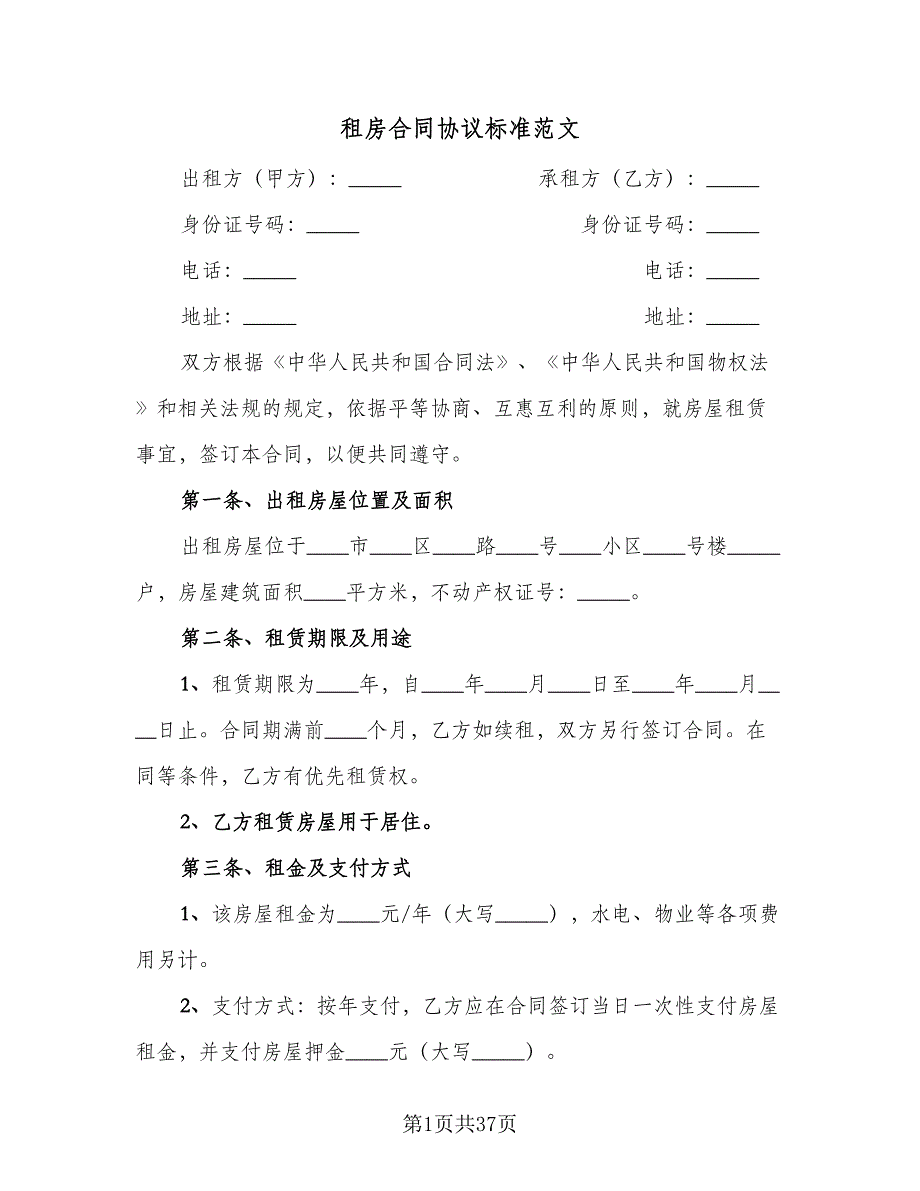 租房合同协议标准范文
出租方（甲方）：_____ 承租方（乙方）：_____
身份证号码：_____ 身份证号码：_____
电话：_____ 电话：_____
地址：_____ 地址：_____
双方根据《中华人民共和国合同法》、《中华人民共和国物权法
》和相关法规的规定，依据平等协商、互惠互利的原则，就房屋租赁
事宜，签订本合同，以便共同遵守。
第一条、出租房屋位置及面积
出租房屋位于____市____区____路____号____小区____号楼_____
户，房屋建筑面积____平方米，不动产权证号：_____。
第二条、租赁期限及用途
1、租赁期限为____年，自____年____月____日至____年____月__
__日止。合同期满前____个月，乙方如续租，双方另行签订合同。在
同等条件，乙方有优先租赁权。
2、乙方租赁房屋用于居住。
第三条、租金及支付方式
1、该房屋租金为____元/年（大写_____），水电、物业等各项费
用另计。
2、支付方式：按年支付，乙方应在合同签订当日一次性支付房屋
租金，并支付房屋押金____元（大写_____）。
第1页共37页